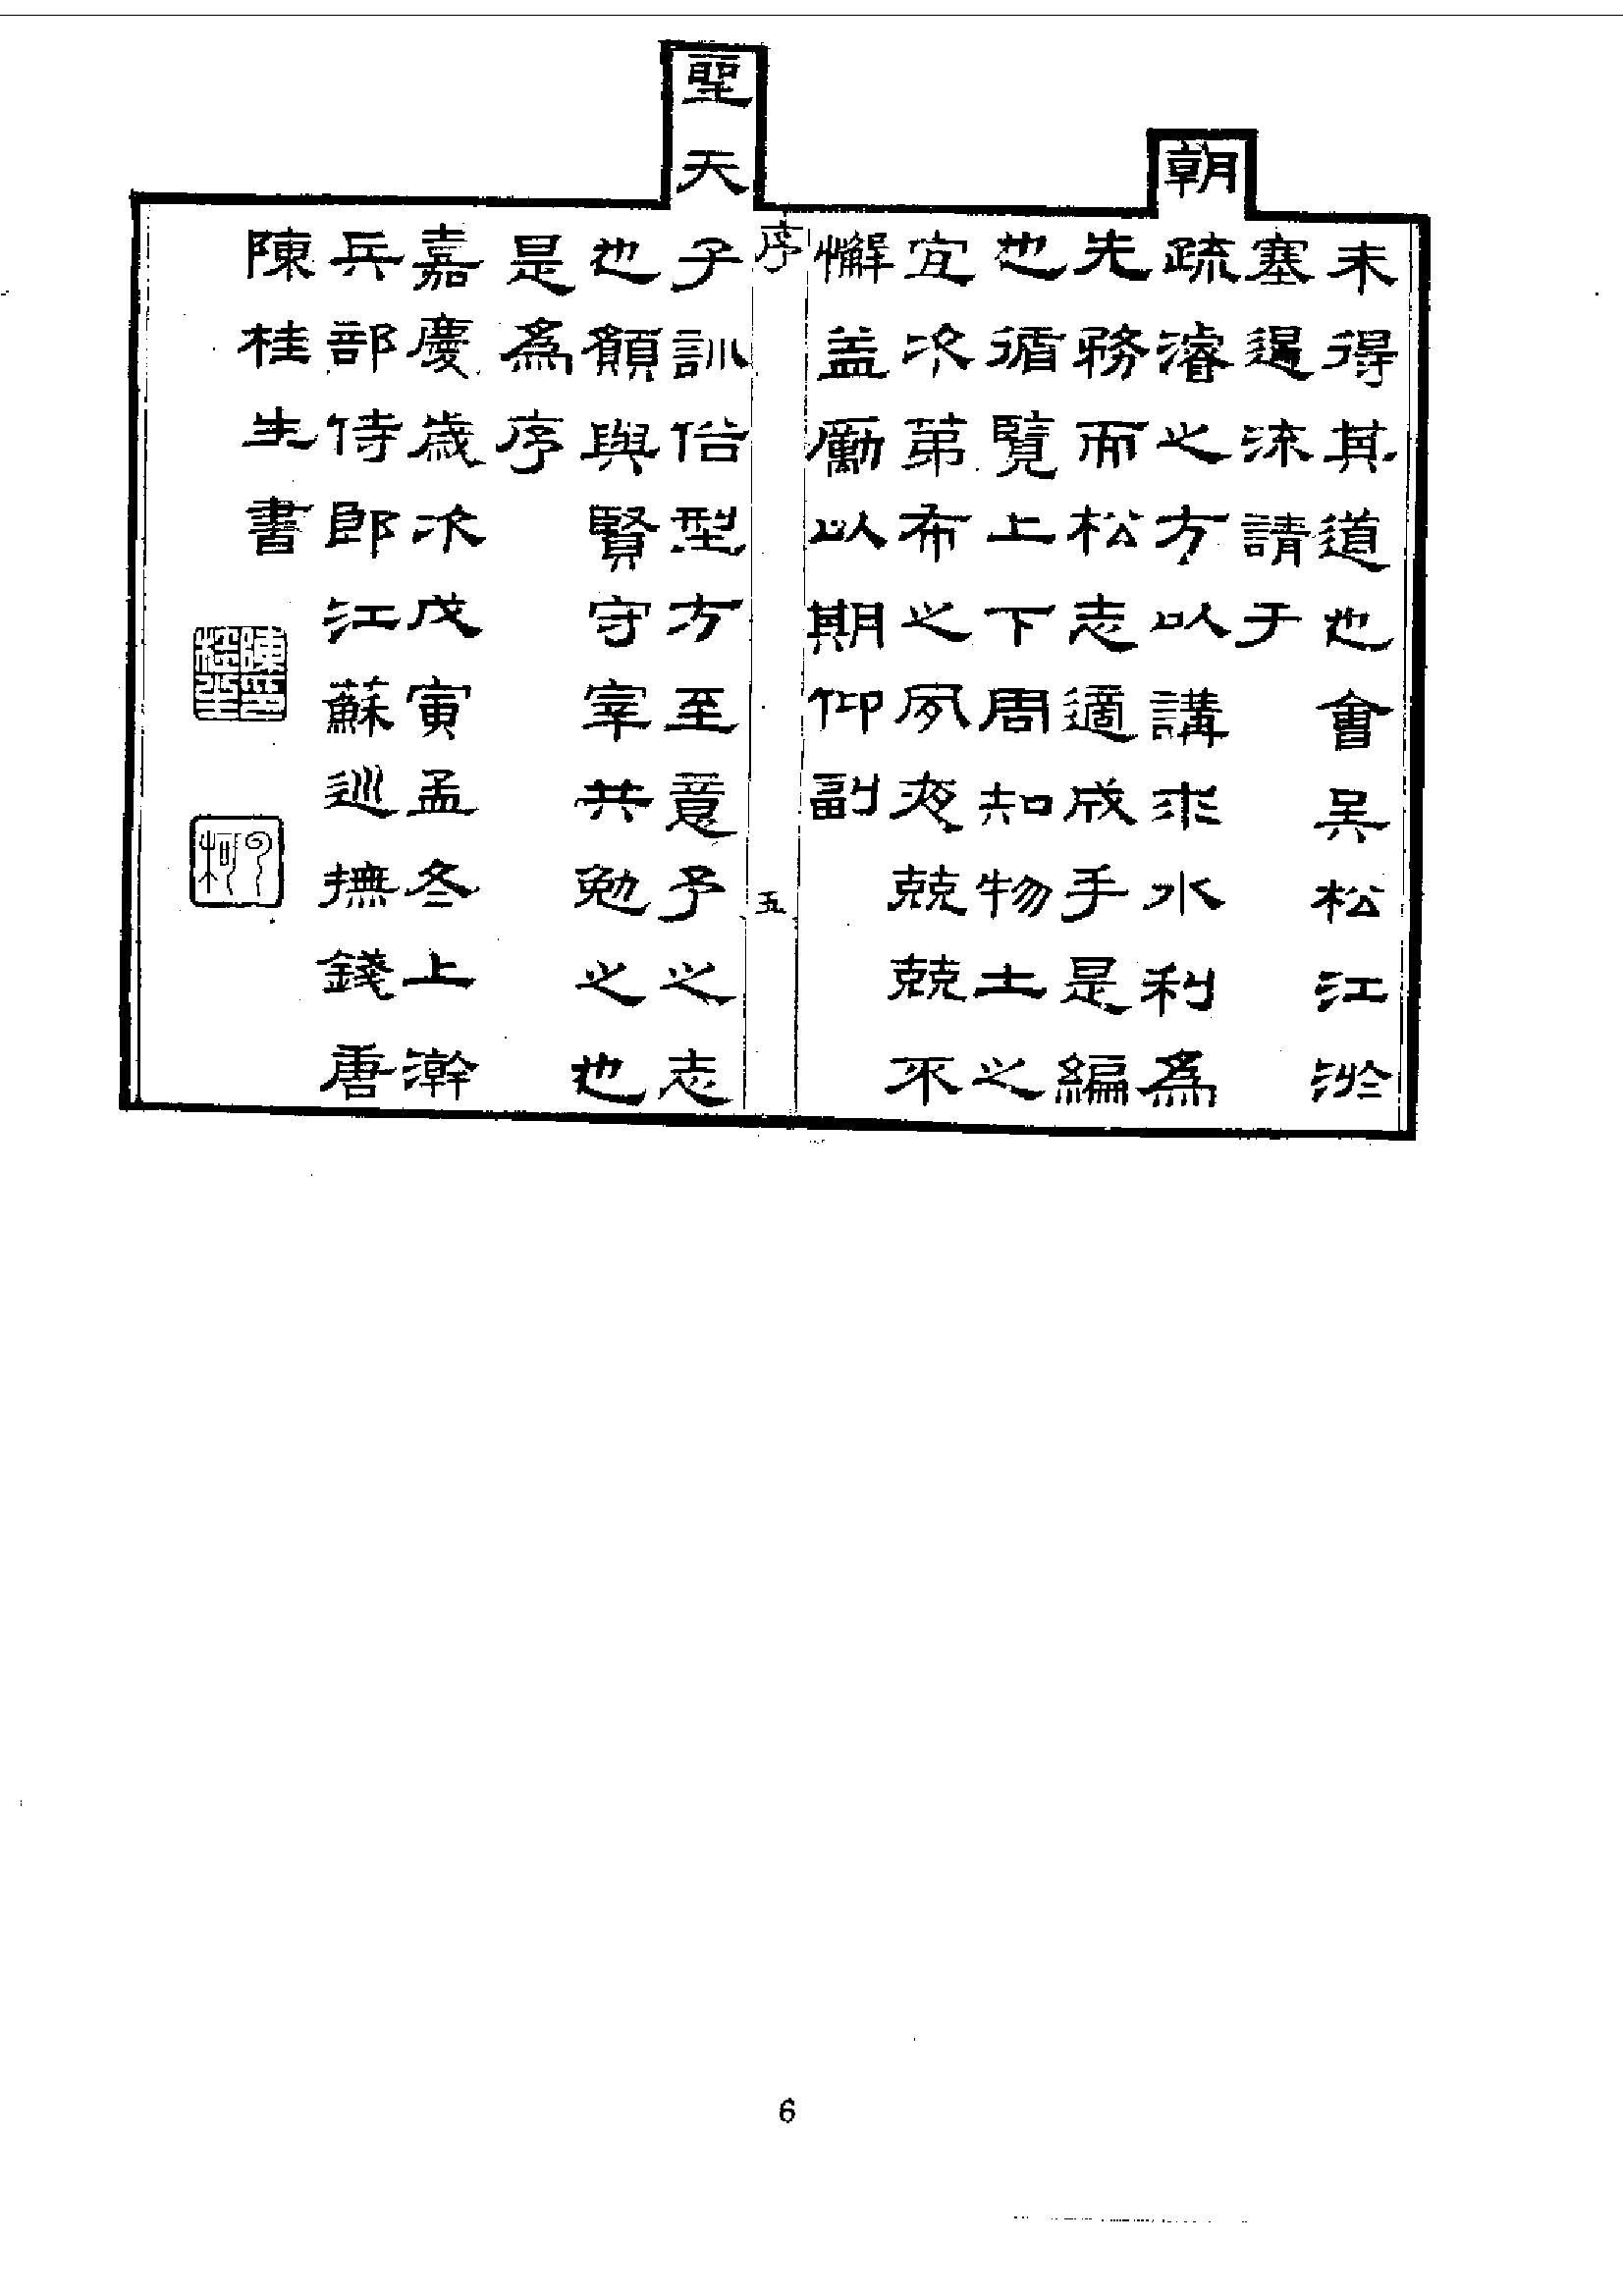 未得其道也會吳松江淤
塞遏流請于
朝疏濬之方以講求水利爲
先務而松志適成手是編
也循覽上下周知物土之
宜次第布之夙夜兢兢不
懈益勵以期仰副
序 五
聖天子訓俗型方至意予之志
也願與賢守宰共勉之也
是爲序
嘉慶歲次戊寅孟冬上澣
兵部侍郎江蘇巡撫錢唐
陳桂生書
陳印桂生
6